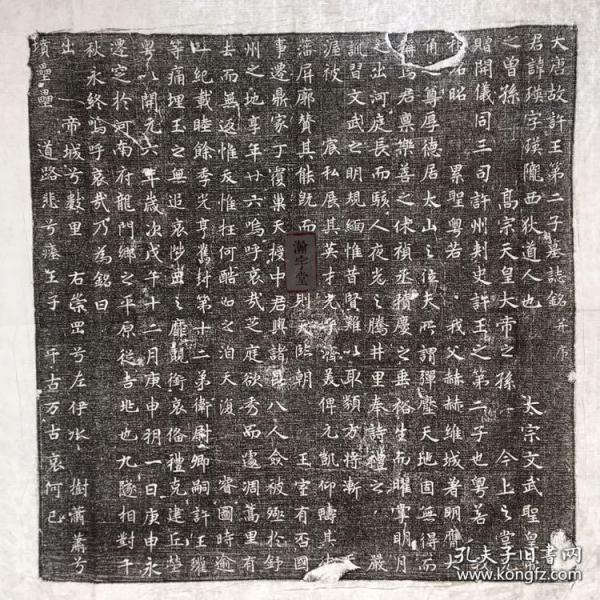 大唐故許王第二子墓誌銘并序
君諱瑛字瑛隴西狄道人也 太宗文武聖皇帝
之曾孫 高宗天皇大帝之孫 今上之堂
贈開儀同三司許州刺史許王之第二子也粵若
昭 累聖粵若 我父赫赫維城著明
之尊厚德居太山之復夫所謂彈壓天地固無得而
稱焉君稟樂善之休禎丞積慶之垂裕生而曜掌明月
之出河庭長而駭人夜光之騰井里奉詩禮之 嚴
訓習文武之明規緬惟昔賢難以取類方將漸
渥彼 宸私展其英才光乎濟美俾元凱仰疇其
藩屏廓贊其能既而 則天臨朝 王室有否國
事遷鼎家丁覆巢天授中君與諸昆八人僉被殛於舒
州之地享年廿六嗚呼哀哉之庭欲秀而遽凋蒿里有
去而無返惟友惟性何酷如之洎天復 睿圖時逾
一紀載睦餘季光享舊封第十二弟衛尉卿嗣許王瓘
等痛埋玉之無追哀陟岵之靡覿銜哀備禮克建丘塋
粵以開元六年歲次戊午十二月庚申朔一日庚申永
遷定於河南府龍門鄉之平原從吉兆也九隧相對千
秋永終嗚呼哀哉乃為銘曰
出帝城兮數里 右崇罡兮左伊水 樹蕭蕭兮
墳壘壘 道路悲兮痿王子 千古万古哀何已
瀚宇堂
孔夫子旧书网
www.kongfz.com